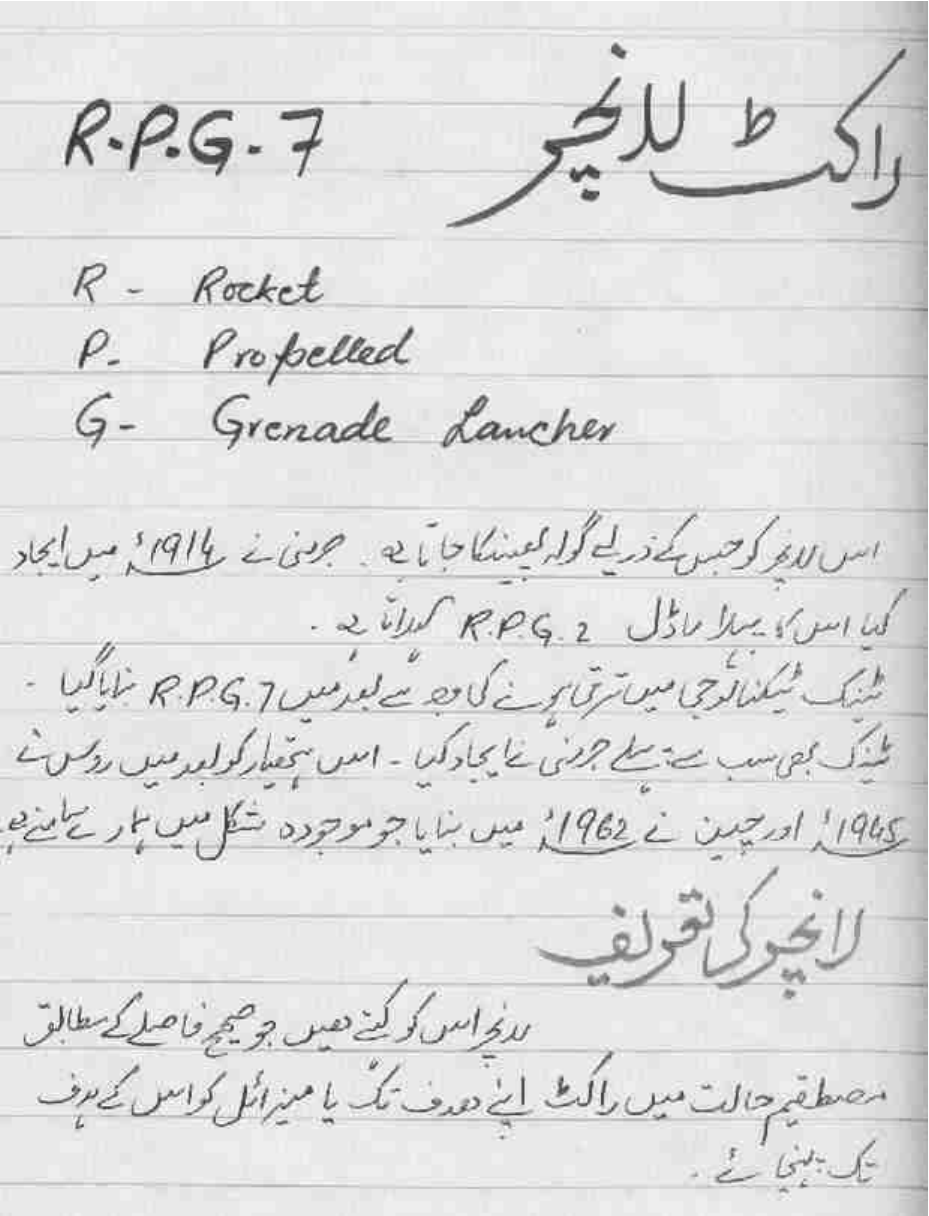 راکٹ لانچر R.P.G.7
R - Rocket
P. Propelled
G- Grenade Lancher
اس لانچر کو جس کے ذریعے گولہ پھینکا جاتا ہے۔ جرمنی نے 1914ء میں ایجاد
کیا اس کا پہلا ماڈل R.P.G.2 کہلاتا ہے۔
ٹینک ٹیکنالوجی میں ترقی ہونے کی وجہ سے بعد میں R.P.G.7 بنایا گیا ۔
ٹینک بھی سب سے پہلے جرمنی نے ایجاد کیا ۔ اس ہتھیار کو بعد میں روس نے
1945ء اور چین نے 1962ء میں بنایا جو موجودہ شکل میں ہمارے سامنے ہے
لانچر کی تعریف
لانچر اس کو کہتے ھیں جو صحیح فاصلے کے مطابق
مصطقیم حالت میں راکٹ اپنے ھدف تک یا میزائل کو اس کے ہدف
تک پہنچائے ۔